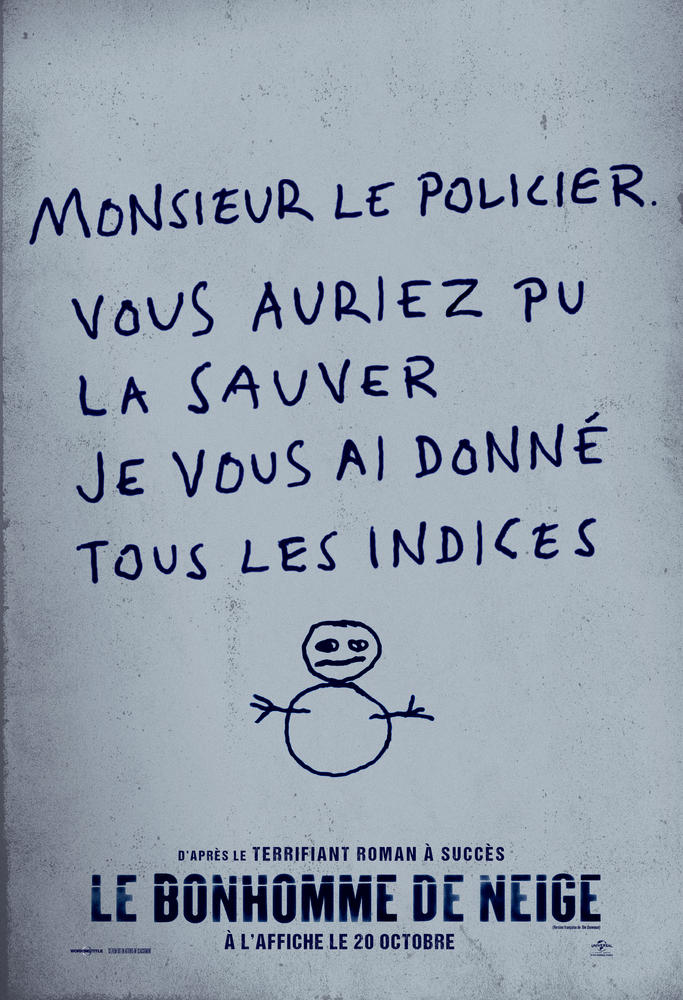 MONSIEUR LE POLICIER.
VOUS AURIEZ PU
LA SAUVER
JE VOUS AI DONNÉ
TOUS LES INDICES
D'APRÈS LE TERRIFIANT ROMAN À SUCCÈS
LE BONHOMME DE NEIGE
(Version française de The Snowman)
À L'AFFICHE LE 20 OCTOBRE
WORKING TITLE
UNIVERSAL